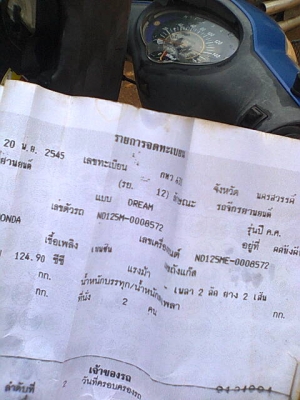 รายการจดทะเบียน
20 พ.ย. 2545 เลขทะเบียน กพว จังหวัด นครสวรรค์
(รย. 12) ลักษณะ รถจักรยานยนต์
แบบ DREAM รุ่นปี ค.ศ.
ONDA เลขตัวรถ ND125M-0008572 อยู่ที่
เชื้อเพลิง เบนซิน เลขเครื่องยนต์ ND125ME-0008572
124.90 ซีซี แรงม้า เพลา 2 ล้อ ยาง 2 เส้น
กก. น้ำหนักบรรทุก/น้ำหนักลงเพลา กก.
กก. ที่นั่ง 2 คน
เจ้าของรถ
ลำดับที่ 2 วันที่ครอบครองรถ